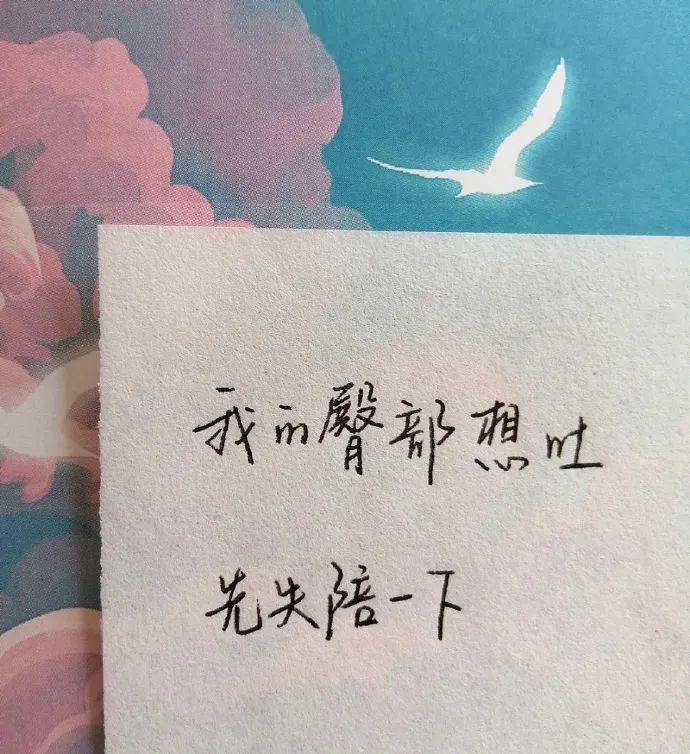 我的臀部想吐
先失陪一下